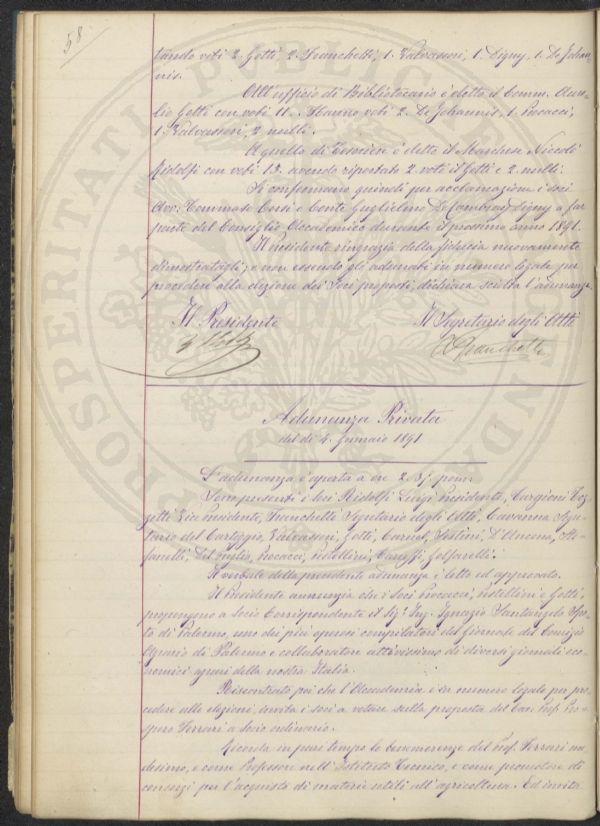 58
tando voti 2. Gotti, 2. Franchetti, 1. Valvassori, 1. Digny, 1. De Johan-
nis.
All'ufficio di Bibliotecario è eletto il Comm. Aure-
lio Gotti con voti 11. Hanno voti 2. De Johannis, 1. Pucacci,
1. Valvassori, 2 nulli.
A quello di Tesoriere è eletto il Marchese Niccolò
Ridolfi con voti 13. avendo riportato 2. voti il Gotti e 2. nulli.
Si confermano quindi per acclamazione i soci
Avv: Tommaso Corsi e Conte Guglielmo De Cambray Digny a far
parte del Consiglio Accademico durante il prossimo anno 1891.
Il Presidente ringrazia della fiducia nuovamente
dimostratagli; e non essendo gli adunati in numero legale per
procedere alla elezione dei Soci proposti, dichiara sciolta l'adunanza.
Il Presidente
Il Segretario degli Atti
Franchetti
Adunanza Privata
del dì 4. Gennaio 1891
L'adunanza è aperta a ore 2 3/4 pom.
Sono presenti i Soci Ridolfi Luigi Presidente, Targioni Toz-
zetti Vice Presidente, Franchetti Segretario degli Atti, Cavanna Segre-
tario del Carteggio, Valvassori, Gotti, Caruel, Sestini, D'Ancona, Ste-
fanelli, Del Puglia, Pucacci, Pestellini, Carega, Golfarelli.
Il verbale della precedente adunanza è letto ed approvato.
Il Presidente annunzia che i Soci Pucacci, Pestellini e Gotti,
propongono a Socio Corrispondente il Sig: Ing. Ignazio Santangelo Spo-
to di Palermo, uno dei più operosi compilatori del Giornale del Comizio
Agrario di Palermo e collaboratore attivissimo di diversi giornali eco-
nomici agrari della nostra Italia.
Riscontrato poi che l'Accademia è in numero legale per pro-
cedere alle elezioni, invita i soci a votare sulla proposta del Cav. Prof. Pro-
spero Ferrari a socio ordinario.
Ricorda in pari tempo le benemerenze del Prof. Ferrari me-
desimo, e come Professore nell'Istituto Tecnico, e come promotore di
consorzi per l'acquisto di materie utili all'agricoltura. Ed invita
PROSPERITATI PUBLICAE